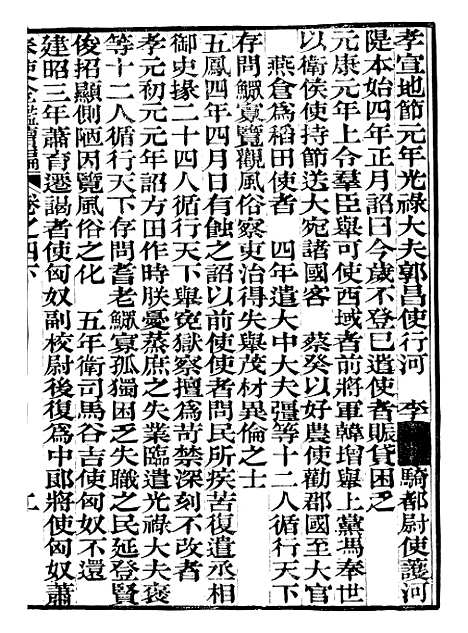 孝宣地節元年光祿大夫郭昌使行河　李　騎都尉使護河
隄本始四年正月詔曰今歲不登已遣使者賑貸困乏
元康元年上令羣臣舉可使西域者前將軍韓增舉上黨馮奉世
以衛侯使持節送大宛諸國客　蔡癸以好農使勸郡國至大官
燕倉爲稻田使者　四年遣大中大夫彊等十二人循行天下
存問鰥寡覽觀風俗察吏治得失舉茂材異倫之士
五鳳四年四月日有蝕之詔以前使使者問民所疾苦復遣丞相
御史掾二十四人循行天下舉冤獄察擅爲苛禁深刻不改者
孝元初元元年詔方田作時朕憂蒸庶之失業臨遣光祿大夫襃
等十二人循行天下存問耆老鰥寡孤獨困乏失職之民延登賢
俊招顯側陋因覽風俗之化　五年衛司馬谷吉使匈奴不還
建昭三年蕭育遷謁者使匈奴副校尉後復爲中郎將使匈奴蕭
奉使全鑑續編　卷之四下